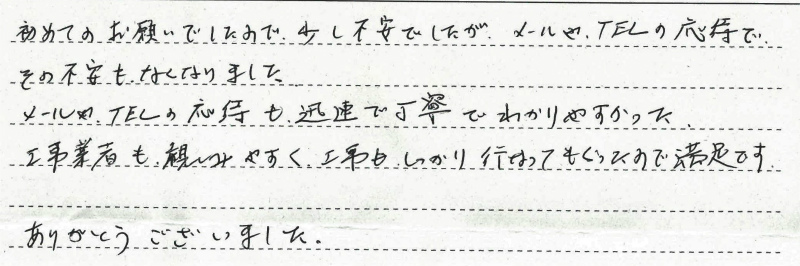 初めてのお願いでしたので、少し不安でしたが、メールや、TELの応待で、
その不安も、なくなりました。
メールや、TELの応待も、迅速で丁寧でわかりやすかった。
工事業者も、親しみやすく、工事も、しっかり行なってもらったので満足です。
ありがとうございました。